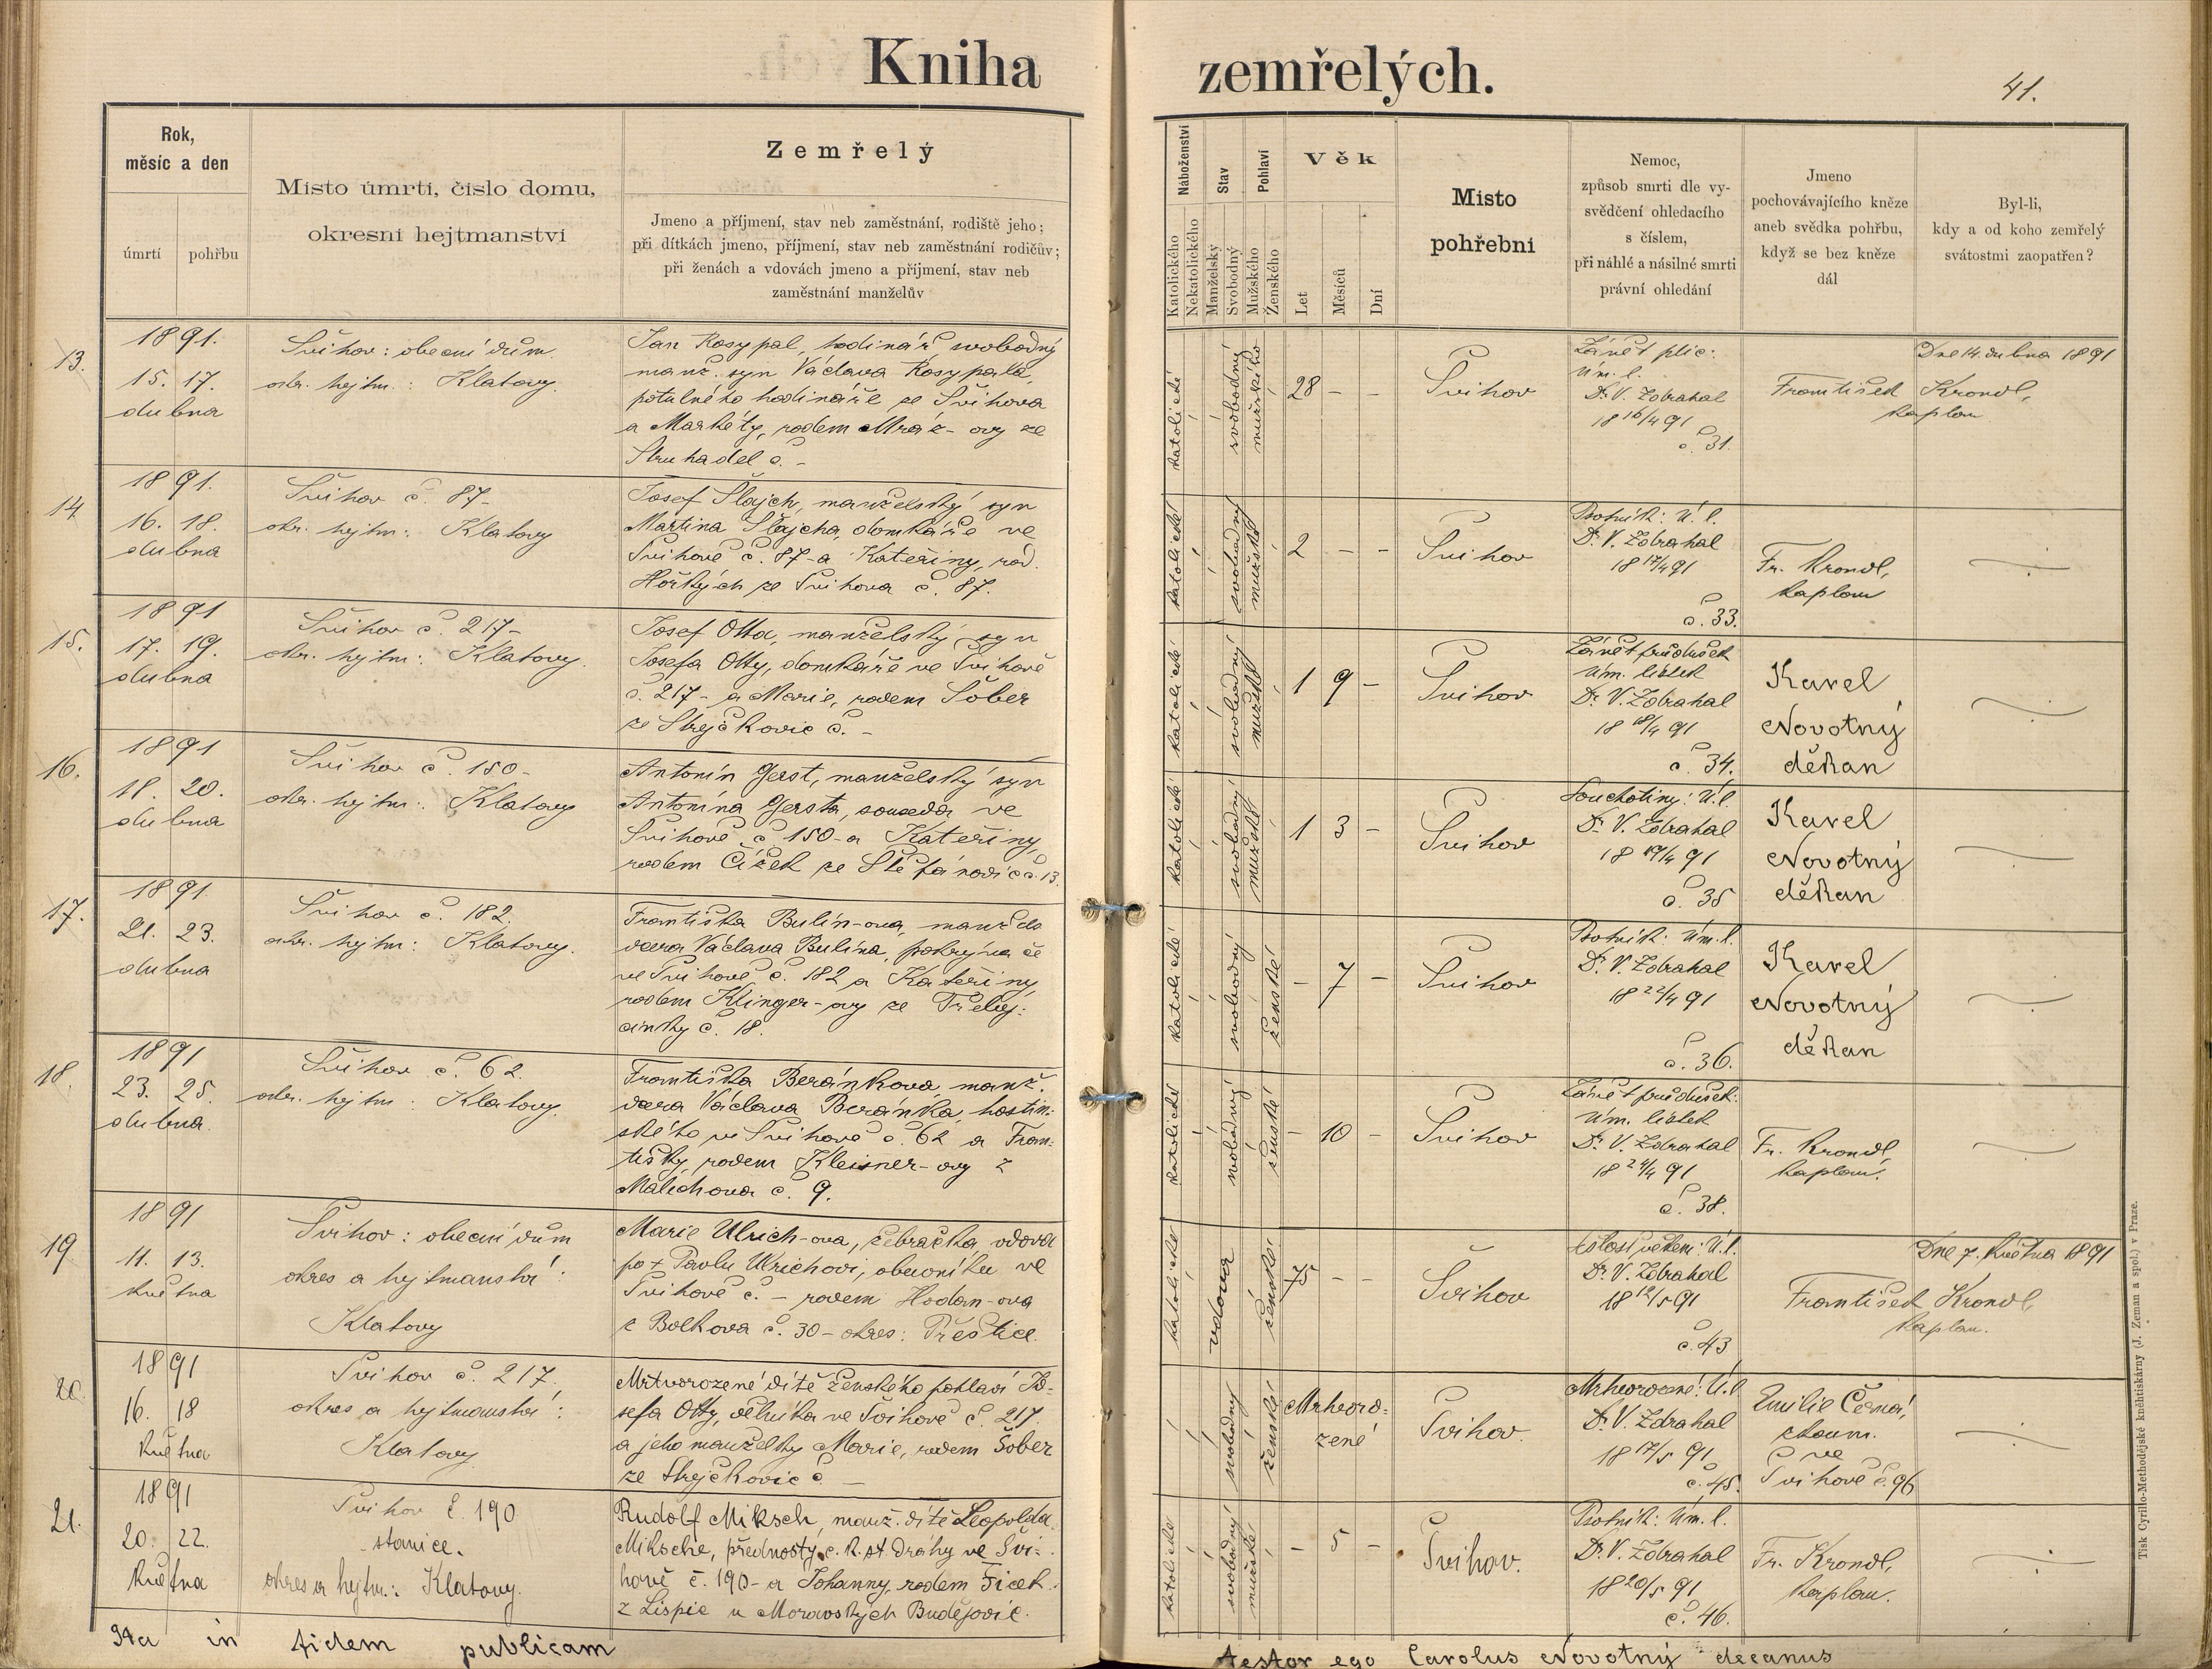 Kniha zemřelých.
41.
Rok,
měsíc a den
úmrtí
pohřbu
Místo úmrtí, číslo domu,
okresní hejtmanství
Zemřelý
Jmeno a příjmení, stav neb zaměstnání, rodiště jeho;
při dítkách jmeno, příjmení, stav neb zaměstnání rodičův;
při ženách a vdovách jmeno a příjmení, stav neb
zaměstnání manželův
Náboženství
Katolického
Nekatolického
Stav
Manželský
Svobodný
Pohlaví
Mužského
Ženského
Věk
Let
Měsíců
Dní
Místo
pohřební
Nemoc,
způsob smrti dle vy-
svědčení ohledacího
s číslem,
při náhlé a násilné smrti
právní ohledání
Jmeno
pochovávajícího kněze
aneb svědka pohřbu,
když se bez kněze
dál
Byl-li,
kdy a od koho zemřelý
svátostmi zaopatřen?
13.
1891.
15. 17.
dubna
Švihov: obecní dům.
okr. hejtm.: Klatovy.
Jan Rosypal, hodinář svobodný
manž. syn Václava Rosypala,
potulného hodináře ze Švihova
a Markéty, rodem Mráz-ovy ze
Struhadel č. -
katolické
svobodný
mužského
28 - -
Švihov
Zánět plic:
Úm. l.
Dr. V. Zdrahal
18 16/4 91
č. 31.
Dne 14. dubna 1891
František Krondl,
kaplan
14
1891.
16. 18.
dubna
Švihov č. 87-
okr. hejtm: Klatovy
Josef Šlajch, manželský syn
Martina Šlajcha, domkáře ve
Švihově č. 87-a Kateřiny, rod.
Hořkých ze Švihova č. 87.
katolické
svobodný
mužské
2 - -
Švihov
Psotník: Ú. l.
Dr. V. Zdrahal
18 17/4 91
č. 33.
Fr. Krondl,
kaplan
15.
1891
17. 19.
dubna
Švihov č. 217-
okr. hejtm: Klatovy.
Josef Otta, manželský syn
Josefa Otty, domkáře ve Švihově
č. 217- a Marie, rodem Šober
ze Strejčkovic č. -
katolické
svobodný
mužské
1 9 -
Švihov
Zánět průdušek
úm. lístek
Dr. V. Zdrahal
18 18/4 91
č. 34.
Karel
Novotný
děkan
16.
1891
18. 20.
dubna
Švihov č. 150-
okr. hejtm: Klatovy
Antonín Gerst, manželský syn
Antonína Gersta, souseda ve
Švihově č. 150-a Kateřiny,
rodem Čížek ze Stefánovic č. 13.
katolické
svobodný
mužské
1 3 -
Švihov
Souchotiny: Ú. l.
Dr. V. Zdrahal
18 19/4 91
č. 35
Karel
Novotný
děkan
17.
1891.
21. 23.
dubna
Švihov č. 182.
okr. hejtm: Klatovy.
Františka Bulín-ova, manž. dc
dcera Václava Bulína, pokrývače
ve Švihově č. 182 a Kateřiny,
rodem Klinger-ovy ze
č. 18.
katolické
svobodný
ženské
- 7 -
Švihov
Psotník: úm. l.
Dr. V. Zdrahal
18 22/4 91
č. 36.
Karel
Novotný
děkan
18.
1891
23. 25.
dubna
Švihov č. 62.
okr. hejtm: Klatovy.
Františka Beránkova, manž.
dcera Václava Beránka, hostin-
ského ve Švihově č. 62 a Fran-
tišky, rodem Kleisner-ovy z
Malechova č. 9.
katolické
svobodný
ženské
- 10 -
Švihov
Zánět průdušek:
úm. lístek
Dr. V. Zdrahal
18 24/4 91
č. 38.
Fr. Krondl,
kaplan.
19.
1891
11. 13.
května
Švihov: obecní dům
okres a hejtmanství:
Klatovy
Marie Ulrich-ova, žebračka, vdova
po + Pavlu Ulrichovi, obecníku ve
Švihově č. - rodem Hodan-ova
z Bolkova č. 30- okres: Přeštice.
katolické
vdova
ženské
75 - -
Švihov
Sešlost věkem: Ú. l.
Dr. V. Zdrahal
18 12/5 91
č. 43
Dne 7. května 1891
František Krondl,
kaplan.
20.
1891
16. 18
května
Švihov č. 217.
okres a hejtmanství:
Klatovy
Mrtvorozené dítě ženského pohlaví Jo-
sefa Otty, dělníka ve Švihově č. 217.
a jeho manželky Marie, rodem Šober
ze Strejčkovic č. -
svobodný
ženské
Mrtvoro-
zené
Švihov.
Mrtvorozené: Ú. l.
Dr. V. Zdrahal
18 17/5 91
č. 45.
Emilie Černá,
zkoum.
ve
Švihově č. 96
21.
1891
20. 22.
května
Švihov č. 190
stanice.
okres a hejtm.: Klatovy.
Rudolf Miksch, manž. dítě Leopolda
Miksche, přednosty c. k. st. dráhy ve Švi-
hově č. 190- a Johanny, rodem Ficek
z Lispic u Moravských Budějovic.
katolické
svobodný
mužské
- 5 -
Švihov.
Psotník: Úm. l.
Dr. V. Zdrahal
18 20/5 91
č. 46.
Fr. Krondl,
kaplan.
Ita in fidem publicam
testor ego Carolus Novotný decanus
Tisk Cyrillo-Methodějské knihtiskárny (J. Zeman a spol.) v Praze.